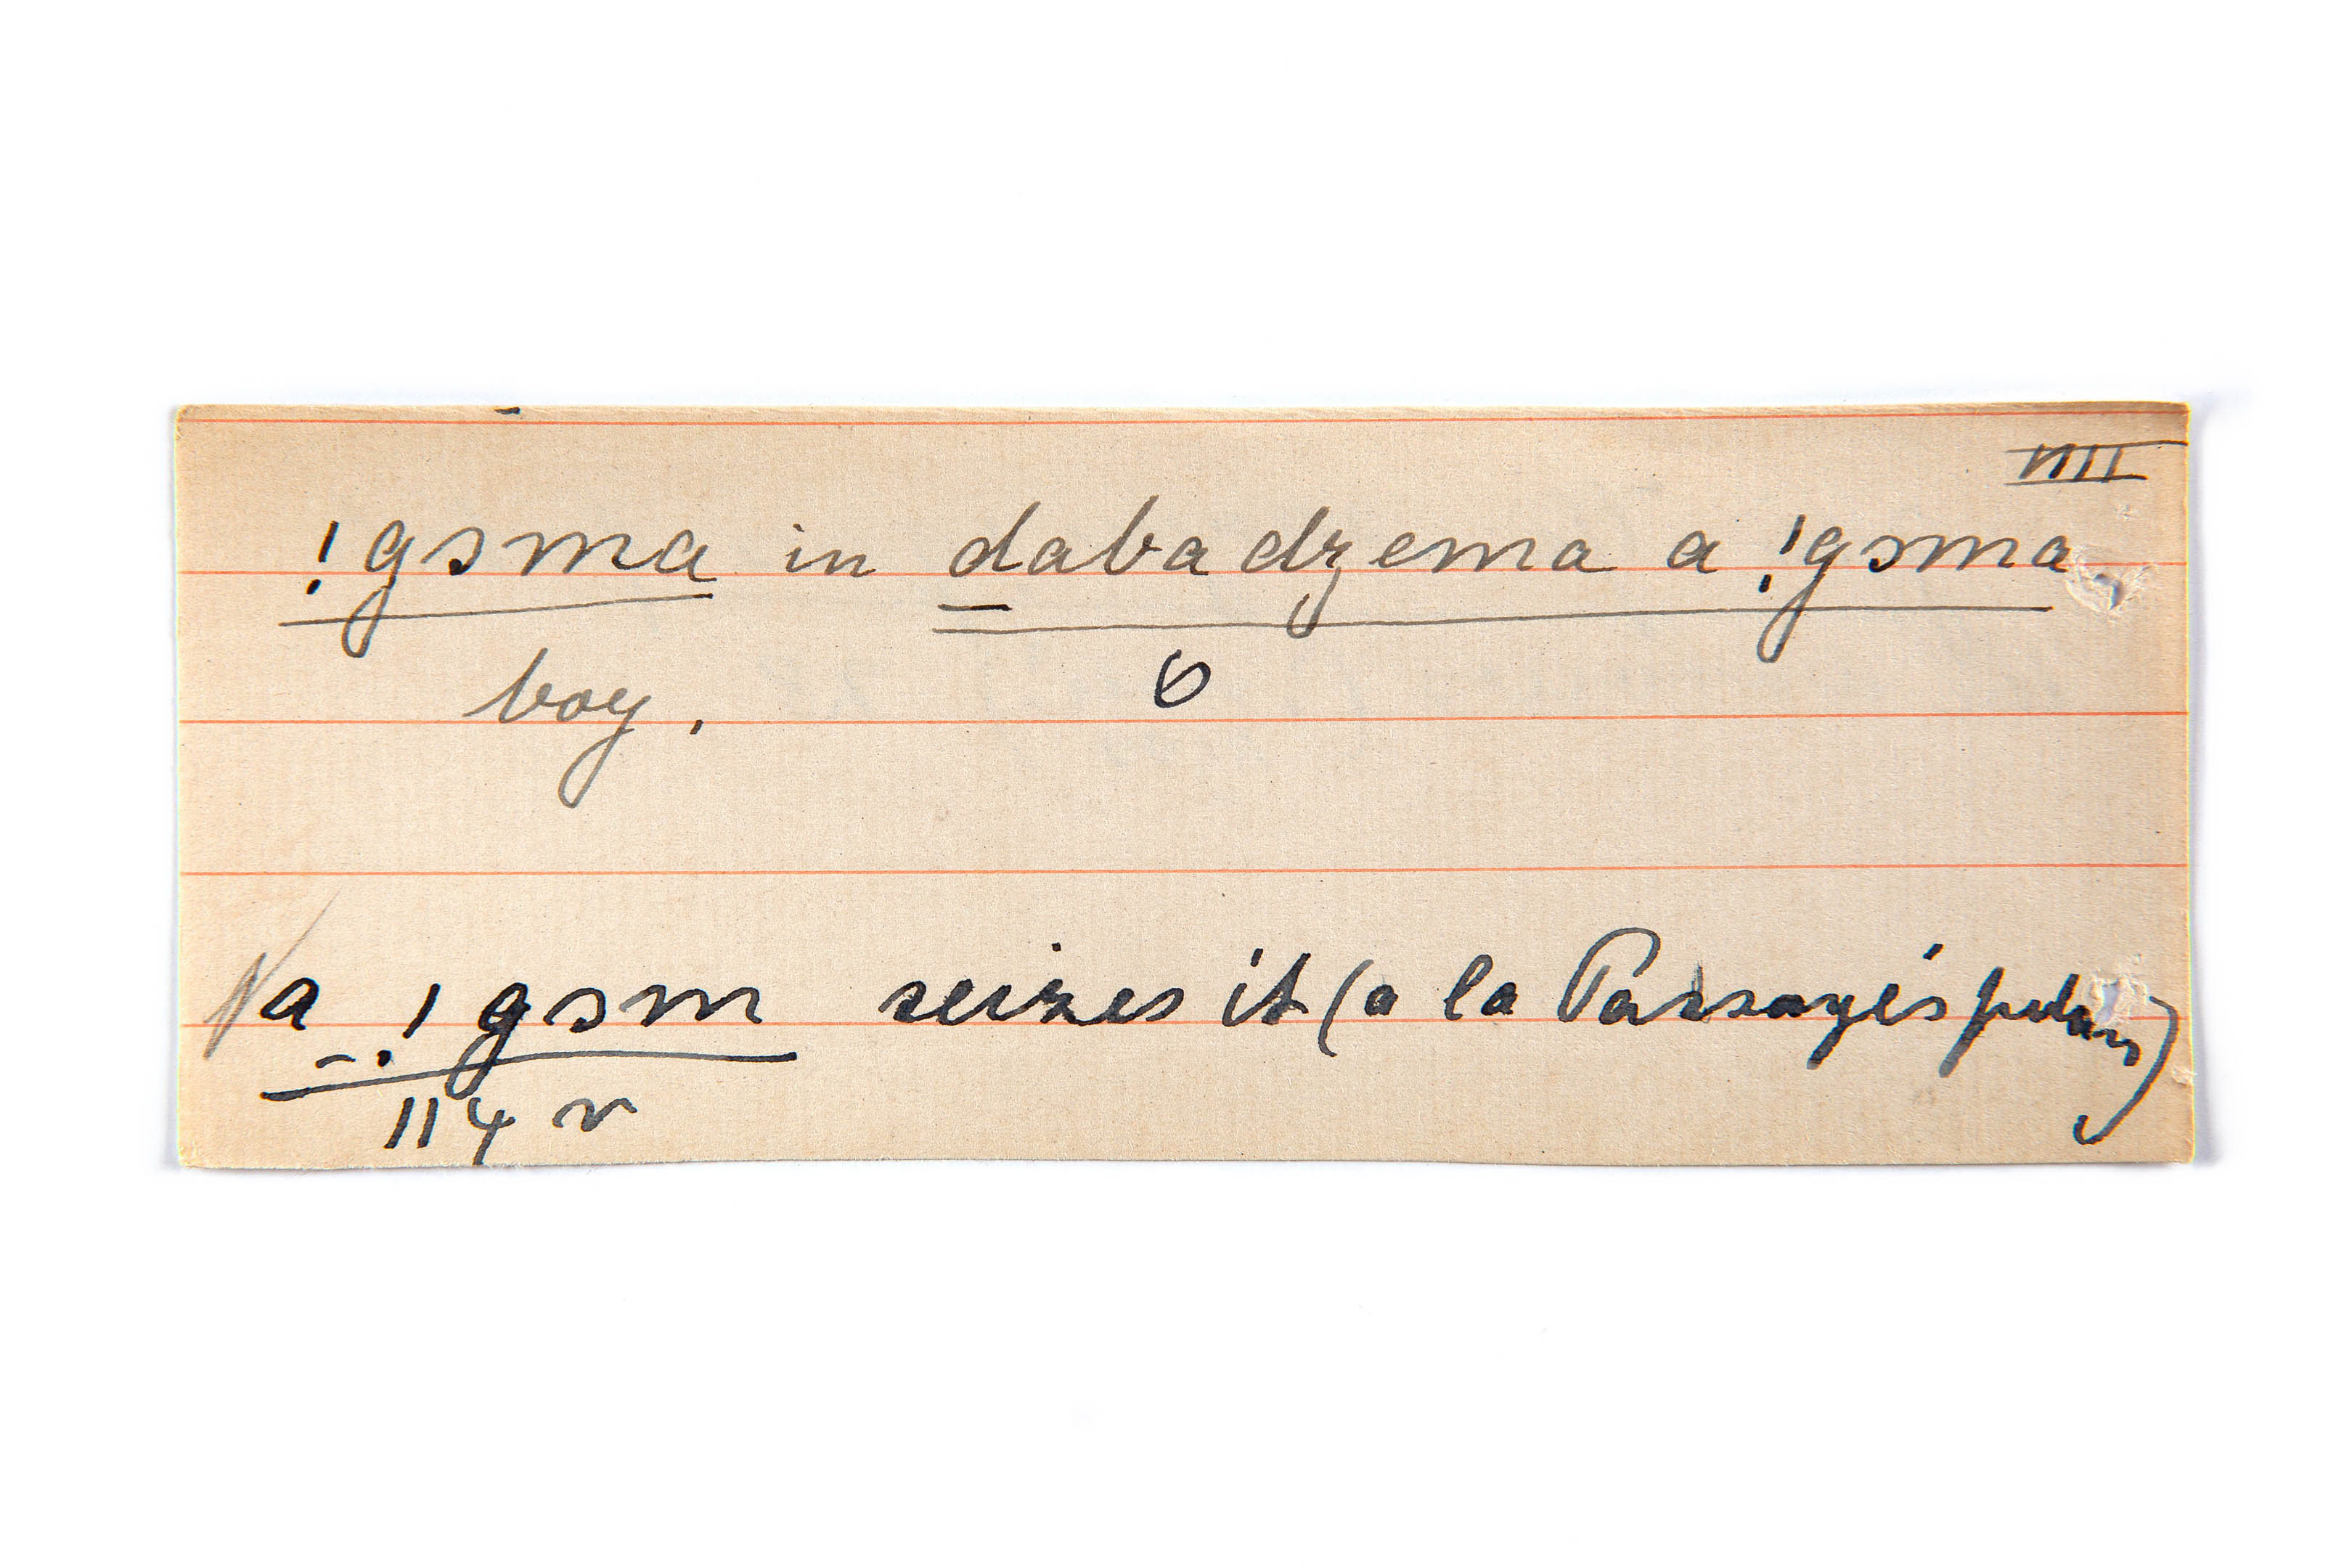 VIII
!gsma in dabadzema a !gsma
boy. 6
a !gsm seizes it (a la Passage's
114 r